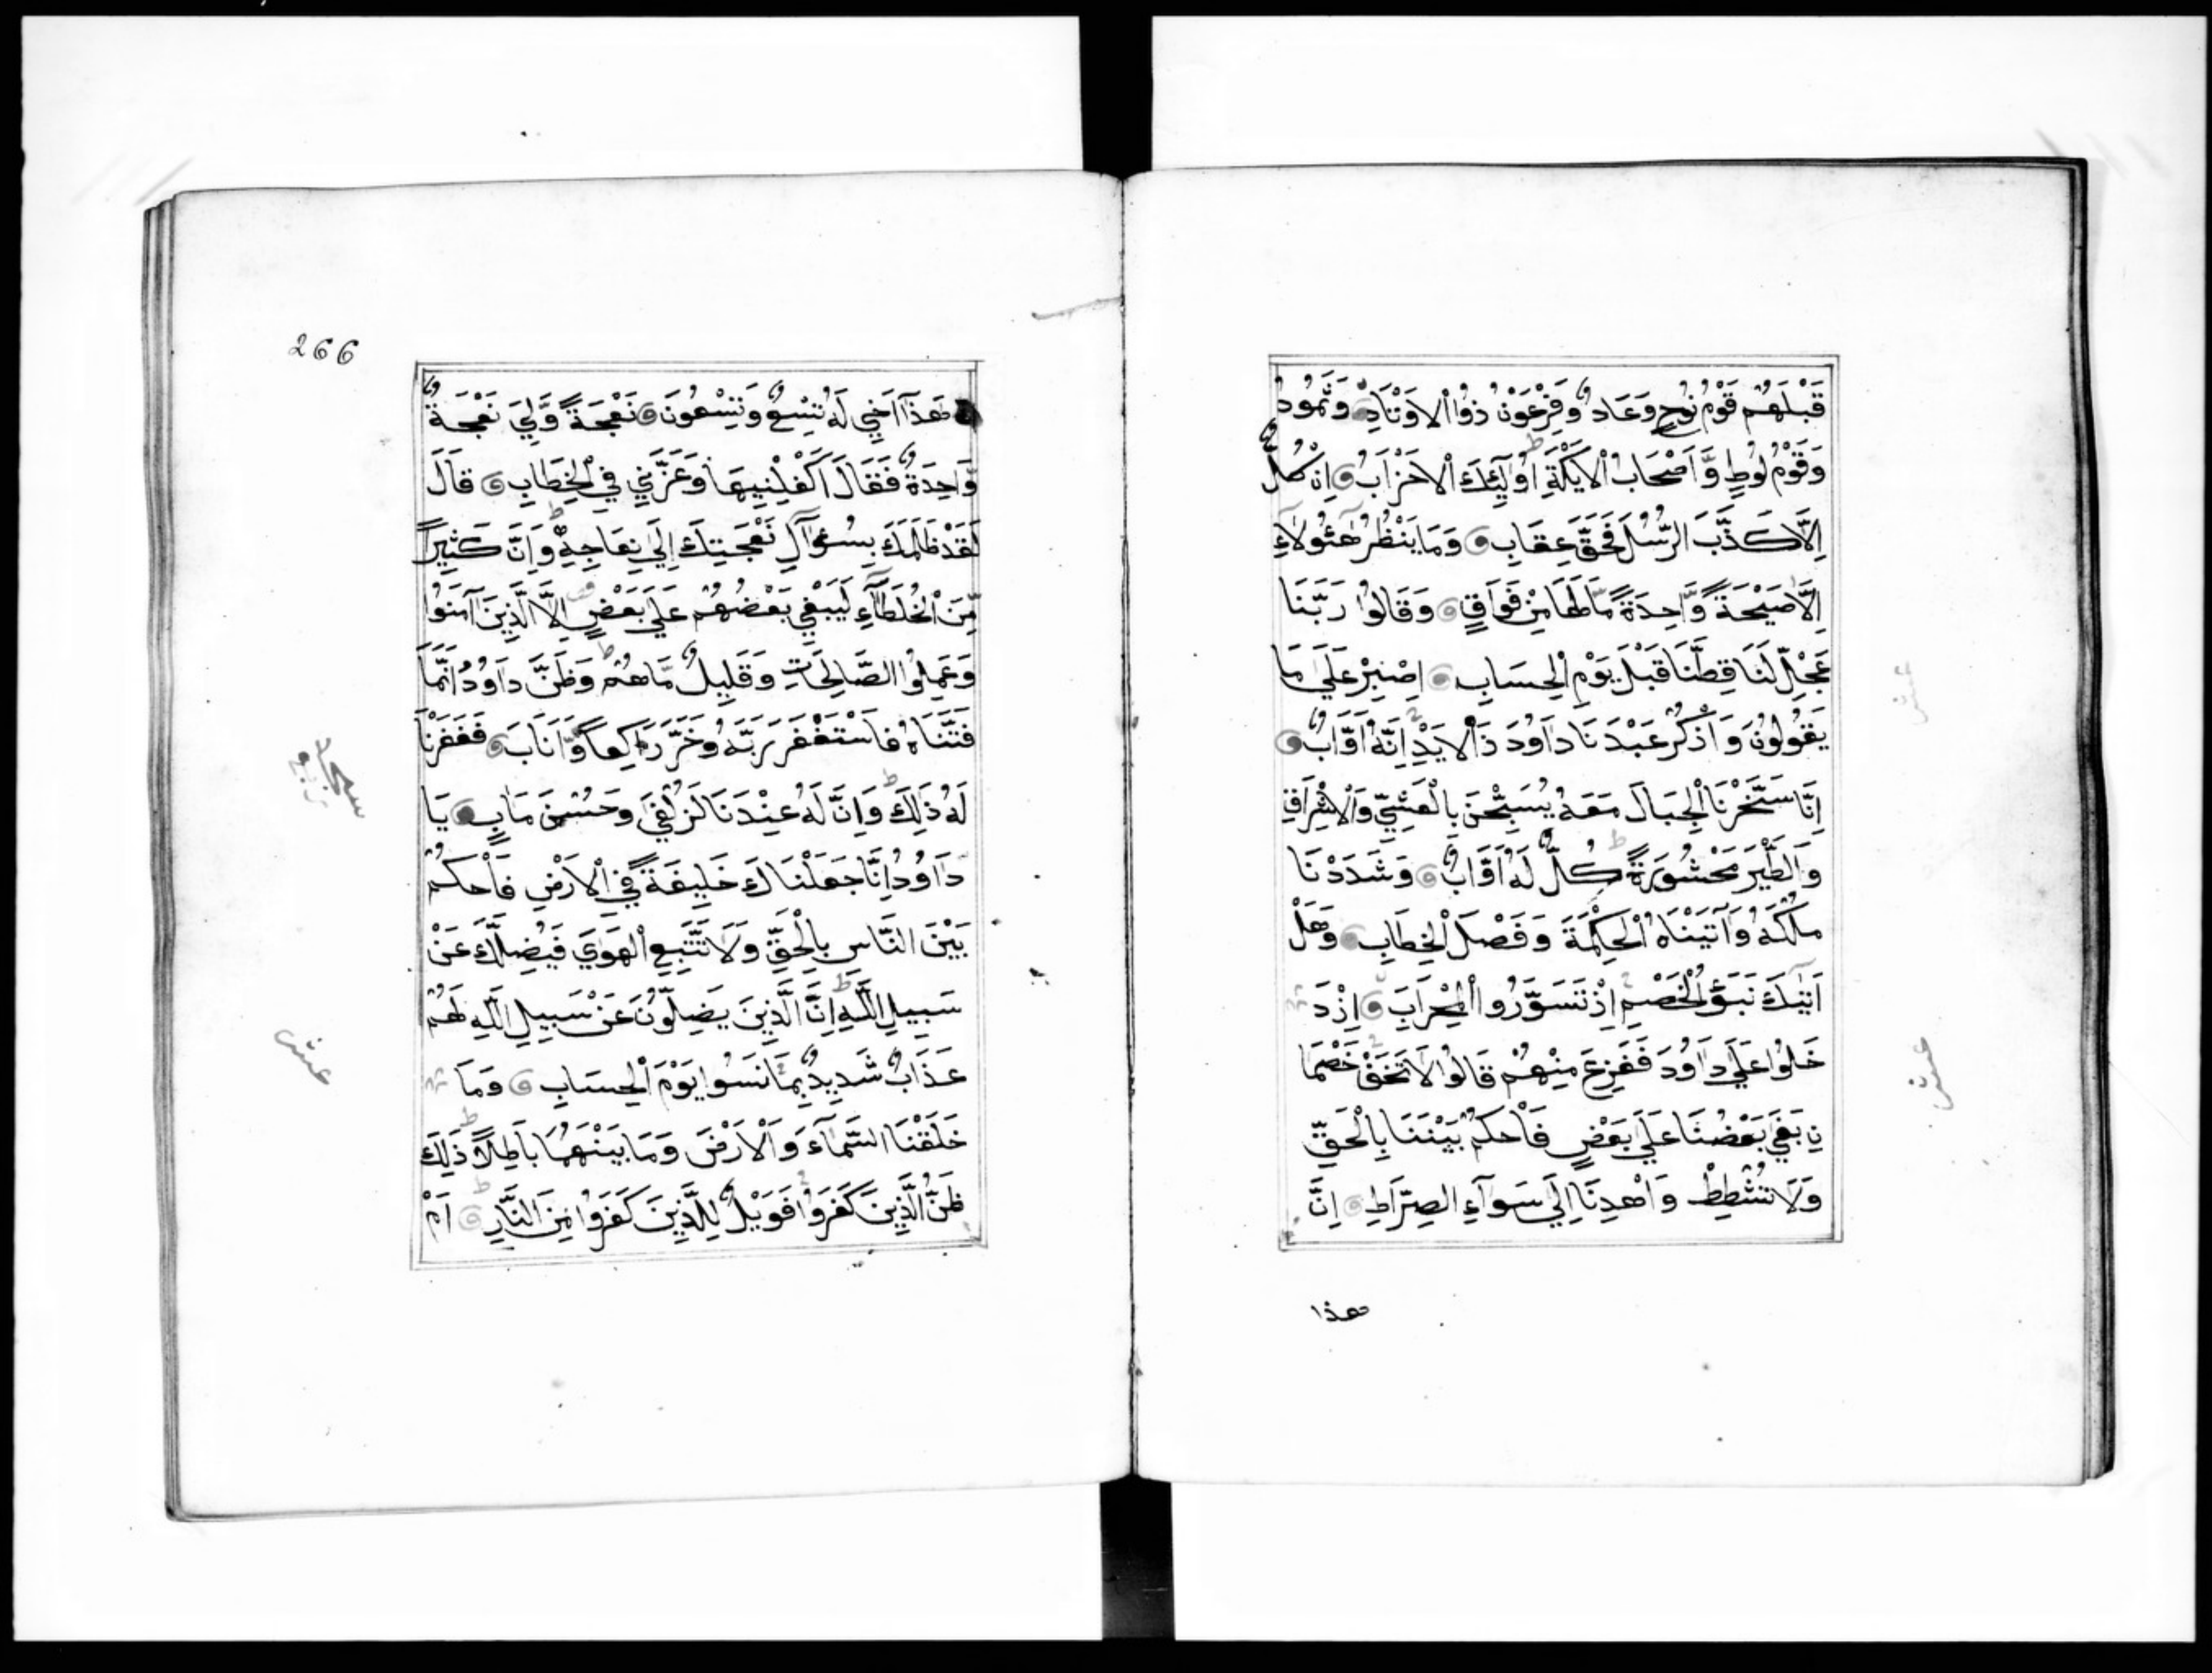 قَبْلَهُمْ قَوْمُ نُوحٍ وَعَادٌ وَفِرْعَوْنُ ذُوا الْاَوْتَادِ وَثَمُودُ
وَقَوْمُ لُوطٍ وَّاَصْحَابُ الْاَيْكَةِ اُولٰٓئِكَ الْاَحْزَابُ اِنْ كُلٌّ
اِلَّا كَذَّبَ الرُّسُلَ فَحَقَّ عِقَابِ وَمَا يَنْظُرُ هٰٓئُولَآءِ
اِلَّا صَيْحَةً وَّاحِدَةً مَّا لَهَا مِنْ فَوَاقٍ وَقَالُوا رَبَّنَا
عَجِّلْ لَنَا قِطَّنَا قَبْلَ يَوْمِ الْحِسَابِ اِصْبِرْ عَلَى مَا
يَقُولُونَ وَاذْكُرْ عَبْدَنَا دَاوُدَ ذَا الْاَيْدِ اِنَّهُ اَوَّابٌ
اِنَّا سَخَّرْنَا الْجِبَالَ مَعَهُ يُسَبِّحْنَ بِالْعَشِيِّ وَالْاِشْرَاقِ
وَالطَّيْرَ مَحْشُورَةً كُلٌّ لَهُ اَوَّابٌ وَشَدَدْنَا
مُلْكَهُ وَآتَيْنَاهُ الْحِكْمَةَ وَفَصْلَ الْخِطَابِ وَهَلْ
اَتٰيكَ نَبَؤُ الْخَصْمِ اِذْ تَسَوَّرُوا الْمِحْرَابَ اِذْ دَ
خَلُوا عَلَى دَاوُدَ فَفَزِعَ مِنْهُمْ قَالُوا لَا تَخَفْ خَصْمَا
نِ بَغَى بَعْضُنَا عَلَى بَعْضٍ فَاحْكُمْ بَيْنَنَا بِالْحَقِّ
وَلَا تُشْطِطْ وَاهْدِنَا اِلَى سَوَآءِ الصِّرَاطِ اِنَّ
هذا
عشر
عشر
266
هَذَا اَخِي لَهُ تِسْعٌ وَتِسْعُونَ نَعْجَةً وَّلِيَ نَعْجَةٌ
وَّاحِدَةٌ فَقَالَ اَكْفِلْنِيهَا وَعَزَّنِي فِي الْخِطَابِ قَالَ
لَقَدْ ظَلَمَكَ بِسُؤَآلِ نَعْجَتِكَ اِلَى نِعَاجِهِ وَاِنَّ كَثِيراً
مِّنَ الْخُلَطَآءِ لَيَبْغِي بَعْضُهُمْ عَلَى بَعْضٍ اِلَّا الَّذِينَ آمَنُوا
وَعَمِلُوا الصَّالِحَاتِ وَقَلِيلٌ مَّا هُمْ وَظَنَّ دَاوُدُ اَنَّمَا
فَتَنَّاهُ فَاسْتَغْفَرَ رَبَّهُ وَخَرَّ رَاكِعاً وَّاَنَابَ فَغَفَرْنَا
لَهُ ذَلِكَ وَاِنَّ لَهُ عِنْدَنَا لَزُلْفَى وَحُسْنَ مَاٰبٍ يَا
دَاوُدُ اِنَّا جَعَلْنَاكَ خَلِيفَةً فِي الْاَرْضِ فَاحْكُمْ
بَيْنَ النَّاسِ بِالْحَقِّ وَلَا تَتَّبِعِ الْهَوَى فَيُضِلَّكَ عَنْ
سَبِيلِ اللَّهِ اِنَّ الَّذِينَ يَضِلُّونَ عَنْ سَبِيلِ اللَّهِ لَهُمْ
عَذَابٌ شَدِيدٌ بِمَا نَسُوا يَوْمَ الْحِسَابِ وَمَا
خَلَقْنَا السَّمَآءَ وَالْاَرْضَ وَمَا بَيْنَهُمَا بَاطِلاً ذَلِكَ
ظَنُّ الَّذِينَ كَفَرُوا فَوَيْلٌ لِلَّذِينَ كَفَرُوا مِنَ النَّارِ اَمْ
عشر